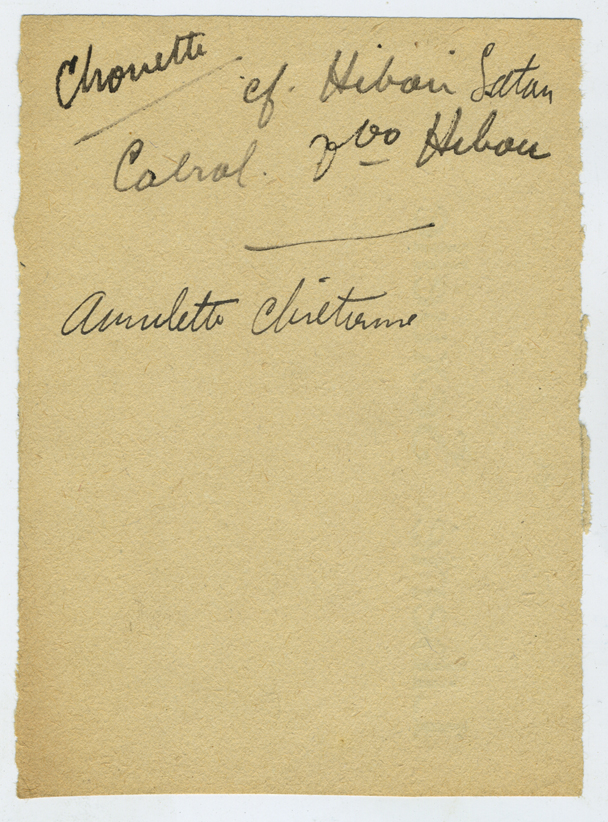 Chouette cf. Hibou Satan
Cabrol. vo Hibou
Amulette chrétienne